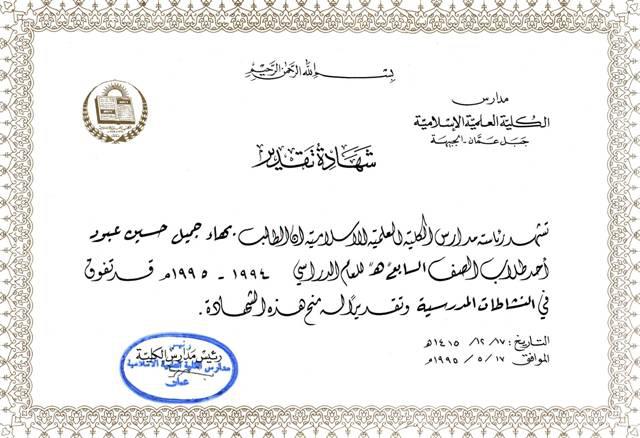 بسم الله الرحمن الرحيم
مدارس
الكلية العلمية الإسلامية
جبل عمّان - الجبيهة
شهادة تقدير
تشهد رئاسة مدارس الكلية العلمية الاسلامية ان الطالب . بهاء جميل حسين عبود
أحد طلاب الصف السابع "هـ" للعام الدراسي ١٩٩٤ - ١٩٩٥م قد تفوق
في النشاطات المدرسية وتقديراً له منح هذه الشهادة .
التاريخ: ١٧/ ١٢/ ١٤١٥هـ
الموافق ١٧ / ٥ / ١٩٩٥م
رئيس مدارس الكلية
رئيس
مدارس الكلية العلمية الاسلامية
عمان